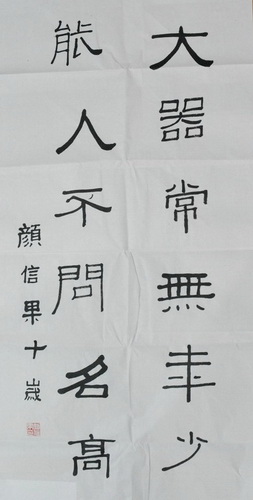 大器常無年少
能人不問名高
顏信果十歲